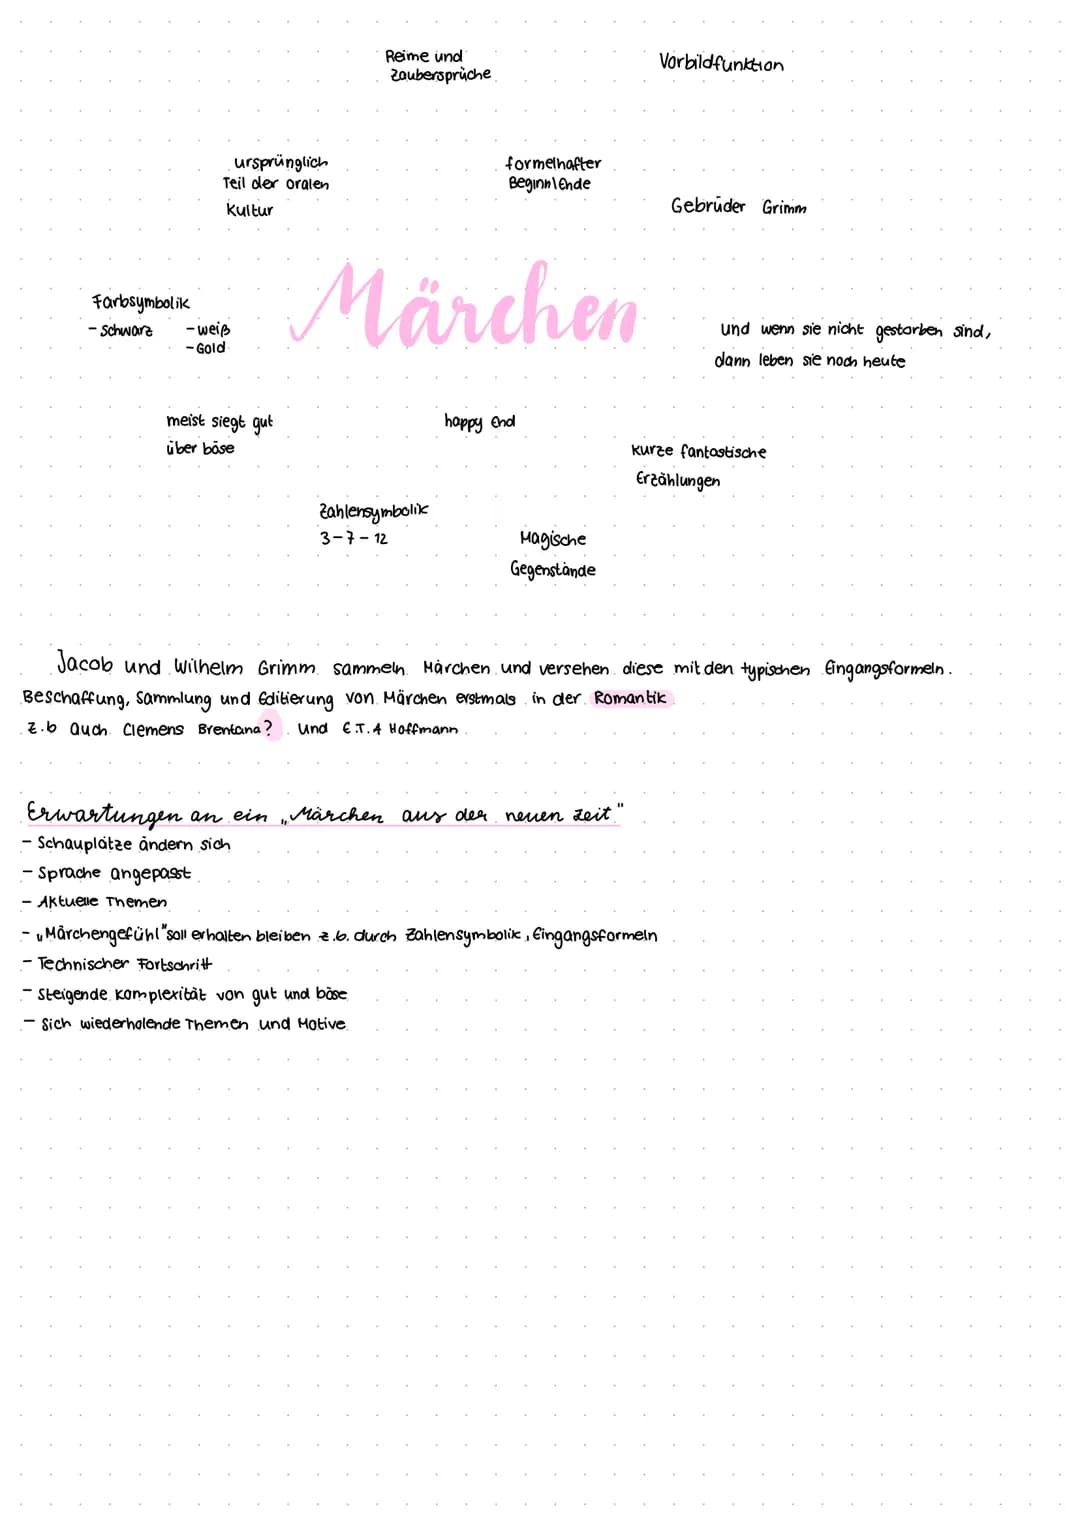 Reime und
Zaubersprüche
Vorbildfunktion
ursprünglich
Teil der oralen
Kultur
formelhafter
Beginn\Ende
Gebrüder Grimm
Märchen
Farbsymbolik
- Schwarz - weiß
- Gold
und wenn sie nicht gestorben sind,
dann leben sie noch heute
meist siegt gut
über böse
happy End
kurze fantastische
Erzählungen
Zahlensymbolik
3-7-12
Magische
Gegenstände
Jacob und Wilhelm Grimm sammeln Märchen und versehen diese mit den typischen Eingangsformeln.
Beschaffung, Sammlung und Editierung von Märchen erstmals in der Romantik
z.b auch Clemens Brentana? und E.T.A Hoffmann
Erwartungen an ein „Märchen aus der neuen Zeit"
- Schauplätze ändern sich
- Sprache angepasst
- Aktuelle Themen
- „Märchengefühl" soll erhalten bleiben z.b. durch Zahlensymbolik, Eingangsformeln
- Technischer Fortschritt
- Steigende Komplexität von gut und böse
- Sich wiederholende Themen und Motive